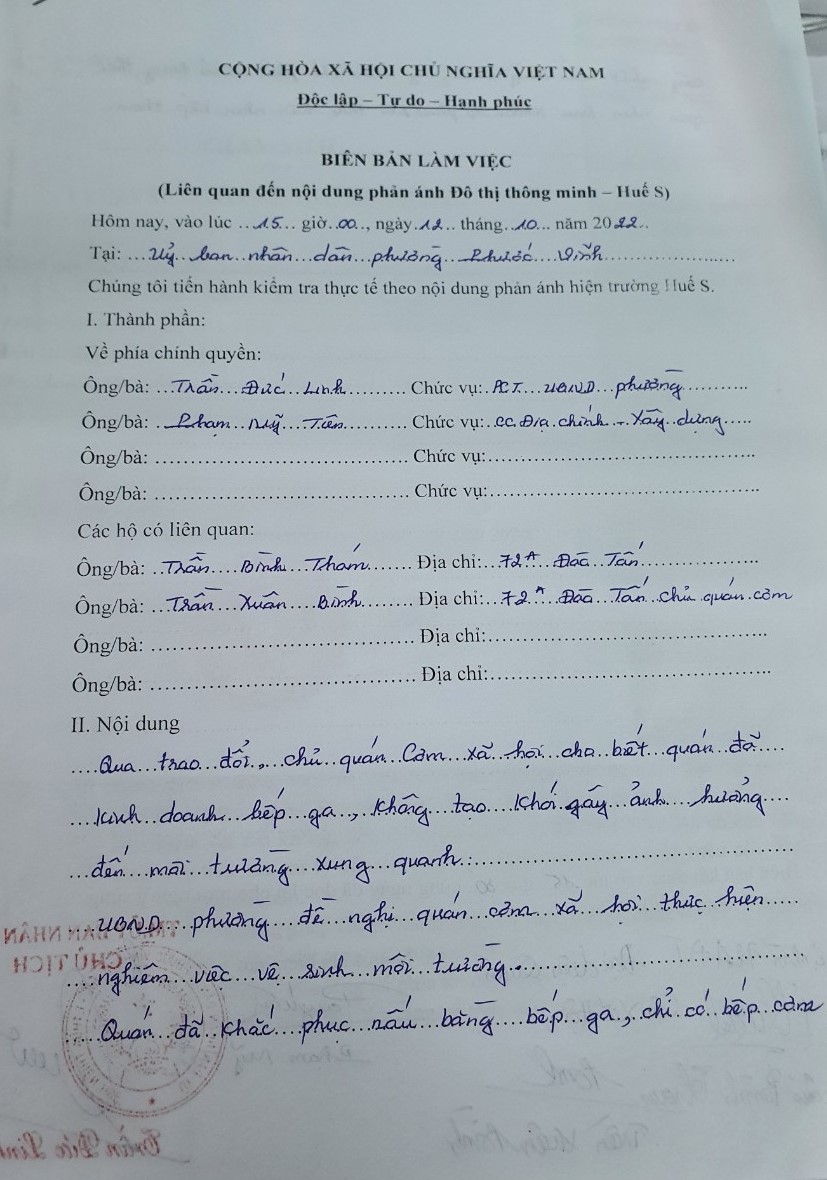 CỘNG HÒA XÃ HỘI CHỦ NGHĨA VIỆT NAM
Độc lập – Tự do – Hạnh phúc
BIÊN BẢN LÀM VIỆC
(Liên quan đến nội dung phản ánh Đô thị thông minh – Huế S)
Hôm nay, vào lúc ...15... giờ..00.., ngày.12.. tháng..10... năm 2022..
Tại: ...Uỷ...ban...nhân...dân...phường...Phước...Vĩnh.....................
Chúng tôi tiến hành kiểm tra thực tế theo nội dung phản ánh hiện trường Huế S.
I. Thành phần:
Về phía chính quyền:
Ông/bà: ...Trần...Đức...Linh.......... Chức vụ:..PCT...UBND...phường...........
Ông/bà: ..Phạm...Mỹ...Tiên.......... Chức vụ:..CC.Địa.chính...Xây..dựng.....
Ông/bà: .......................................... Chức vụ:............................................
Ông/bà: .......................................... Chức vụ:............................................
Các hộ có liên quan:
Ông/bà: ..Trần....Bình...Thám....... Địa chỉ:...72A...Đào...Tấn....................
Ông/bà: ..Trần...Xuân....Bình........ Địa chỉ:...72A...Đào...Tấn..chủ.quán.cơm
Ông/bà: .......................................... Địa chỉ:..............................................
Ông/bà: .......................................... Địa chỉ:..............................................
II. Nội dung
....Qua...trao...đổi.,..chủ..quán..Cơm...xã..hội...cho..biết...quán..đã....
...kinh..doanh..bếp...ga..,.không...tạo...khói.gây...ảnh...hưởng....
...đến...môi...trường...xung..quanh.:.............................................
....UBND...phường...đề...nghị...quán...cơm...xã...hội...thực..hiện.....
....nghiêm..việc...vệ..sinh..môi..trường..........................................
.....Quán...đã..khắc...phục..nấu...bằng....bếp...ga..,.chỉ.có.bếp..cơm
CHỦ TỊCH
Trần Đức Linh